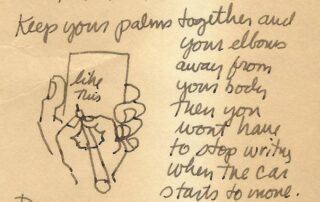 Keep your palms together and
your elbows
away from
your body
then you
wont have
to stop writing
when the car
starts to move.
like
this